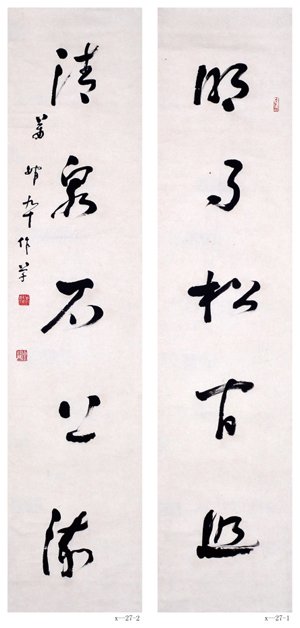 明月松間照
清泉石上流
蕭嫻九十作草
x—27-2
x—27-1